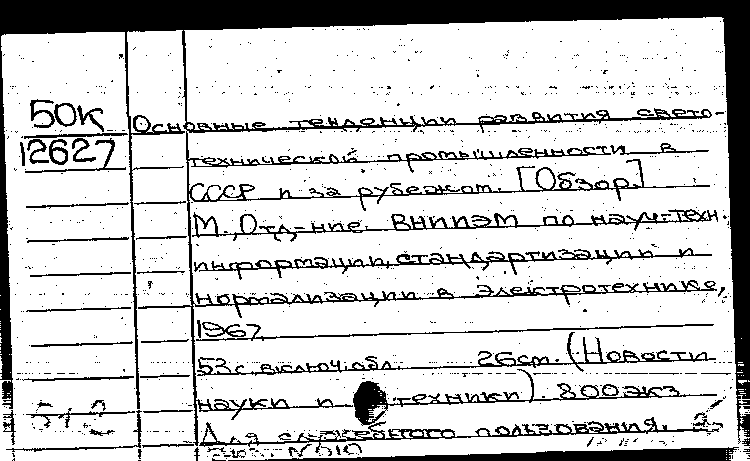 50К
12627
Основные тенденции развития свето-
технической промышленности в
СССР и за рубежом. [Обзор.]
М., Отд-ние ВНИИЭМ по науч-техн.
информации, стандартизации и
нормализации в электротехнике,
1967
53 с. включ. обл. 26см. (Новости
науки и техники). 800 экз
Для служебного пользования.